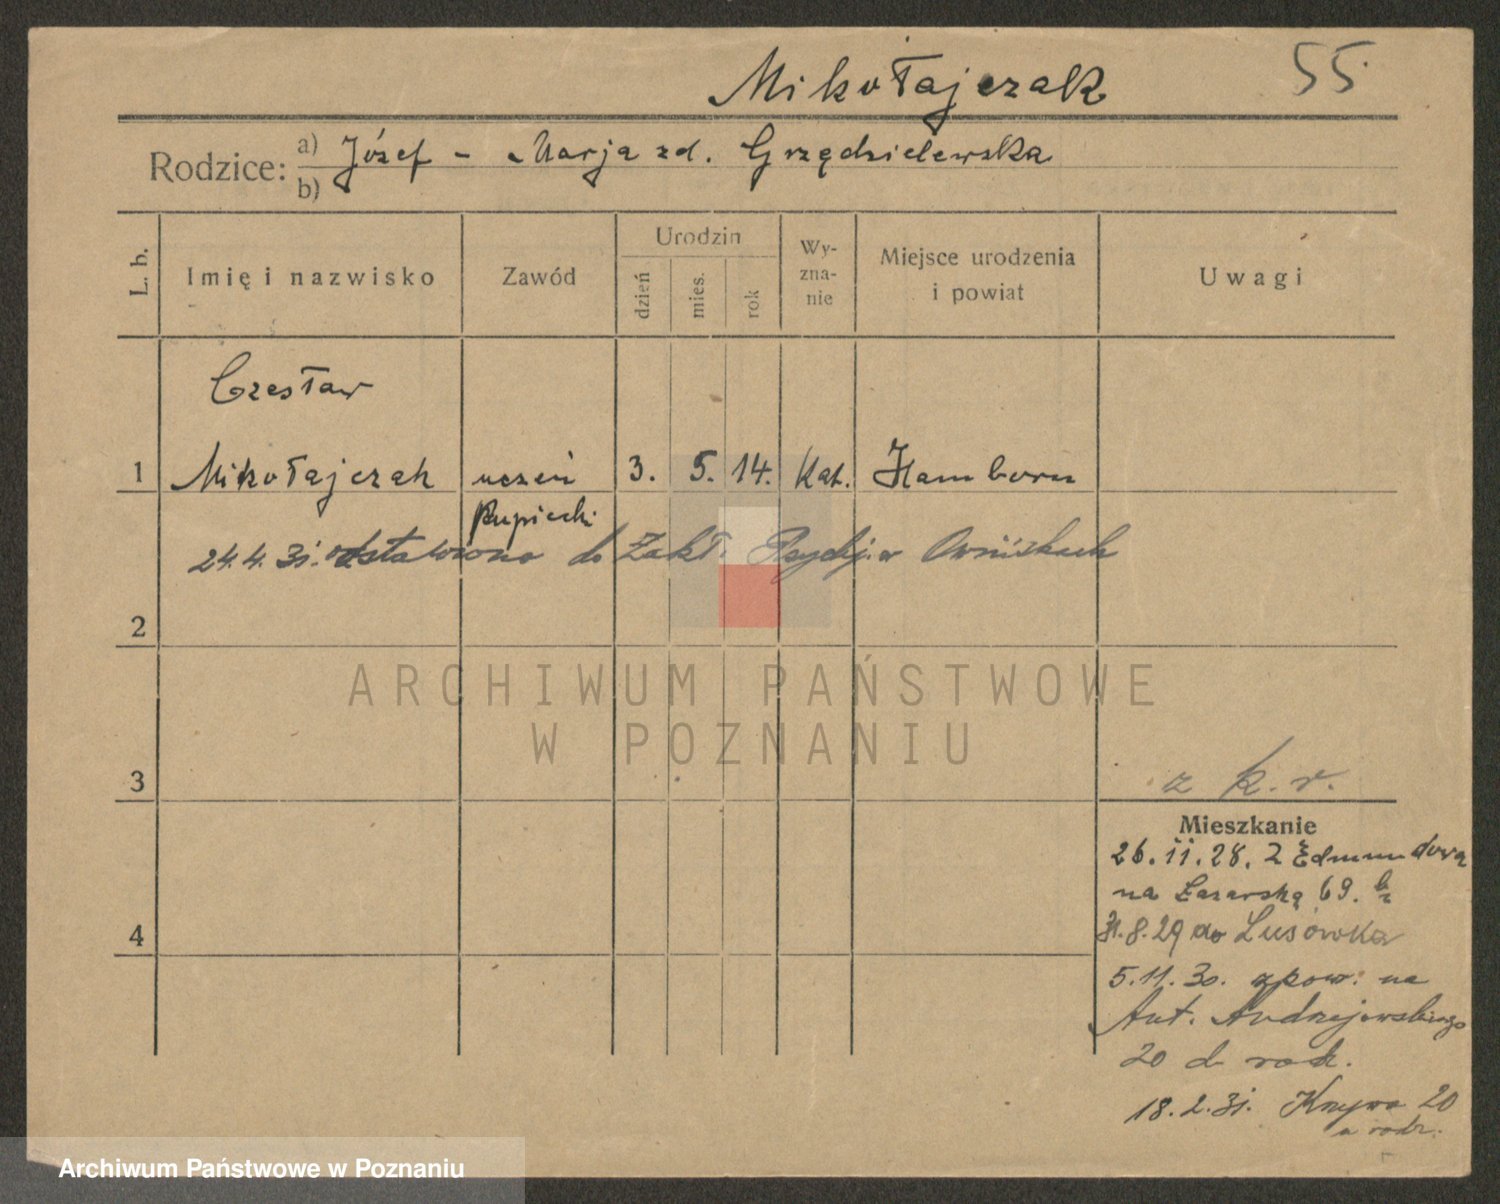 Mikołajczak 55
Rodzice: a) Józef - Marja zd. Grządzielewska
b)
L. b.
Imię i nazwisko
Zawód
Urodzin
dzień
mies.
rok
Wy-
zna-
nie
Miejsce urodzenia
i powiat
Uwagi
Czesław
1 Mikołajczak uczeń 3. 5. 14. Kat. Hamborn
kupiecki
24.4.31. odstawiono do Zakł. Psychj. w Owińskach
2
ARCHIWUM PAŃSTWOWE
W POZNANIU
3
z k. r.
Mieszkanie
26.11.28. Z Edmundowa
na Łazarską 69.
8.29 do Lusówka
4
5.11.30. zpow. na
Ant. Andrzejewskiego
20 d rodz.
18.2.31. Krzywa 20
a rodz.
Archiwum Państwowe w Poznaniu